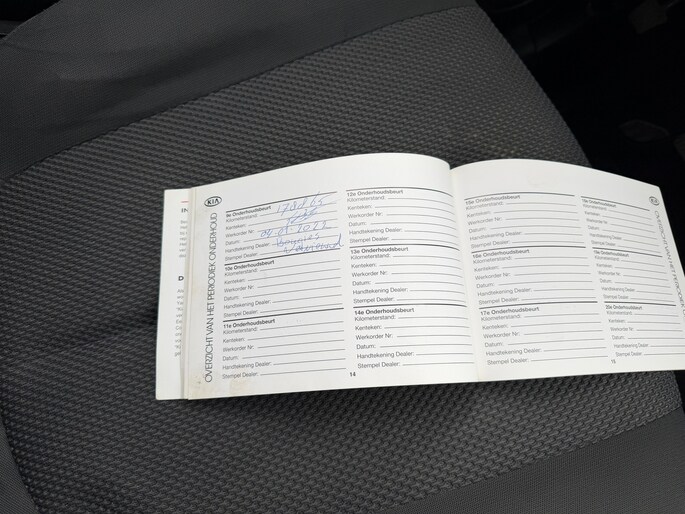 KIA
OVERZICHT VAN HET PERIODIEK ONDERHOUD
9e Onderhoudsbeurt
Kilometerstand:
Kenteken:
Werkorder Nr:
Datum:
Handtekening Dealer:
Stempel Dealer:
10e Onderhoudsbeurt
Kilometerstand:
Kenteken:
Werkorder Nr:
Datum:
Handtekening Dealer:
Stempel Dealer:
11e Onderhoudsbeurt
Kilometerstand:
Kenteken:
Werkorder Nr:
Datum:
Handtekening Dealer:
Stempel Dealer:
12e Onderhoudsbeurt
Kilometerstand:
Kenteken:
Werkorder Nr:
Datum:
Handtekening Dealer:
Stempel Dealer:
13e Onderhoudsbeurt
Kilometerstand:
Kenteken:
Werkorder Nr:
Datum:
Handtekening Dealer:
Stempel Dealer:
14e Onderhoudsbeurt
Kilometerstand:
Kenteken:
Werkorder Nr:
Datum:
Handtekening Dealer:
Stempel Dealer:
14
15e Onderhoudsbeurt
Kilometerstand:
Kenteken:
Werkorder Nr:
Datum:
Handtekening Dealer:
Stempel Dealer:
16e Onderhoudsbeurt
Kilometerstand:
Kenteken:
Werkorder Nr:
Datum:
Handtekening Dealer:
Stempel Dealer:
17e Onderhoudsbeurt
Kilometerstand:
Kenteken:
Werkorder Nr:
Datum:
Handtekening Dealer:
Stempel Dealer:
18e Onderhoudsbeurt
Kilometerstand:
Kenteken:
Werkorder Nr:
Datum:
Handtekening Dealer:
Stempel Dealer:
19e Onderhoudsbeurt
Kilometerstand:
Kenteken:
Werkorder Nr:
Datum:
Handtekening Dealer:
Stempel Dealer:
20e Onderhoudsbeurt
Kilometerstand:
Kenteken:
Werkorder Nr:
Datum:
Handtekening Dealer:
Stempel Dealer:
15
KIA